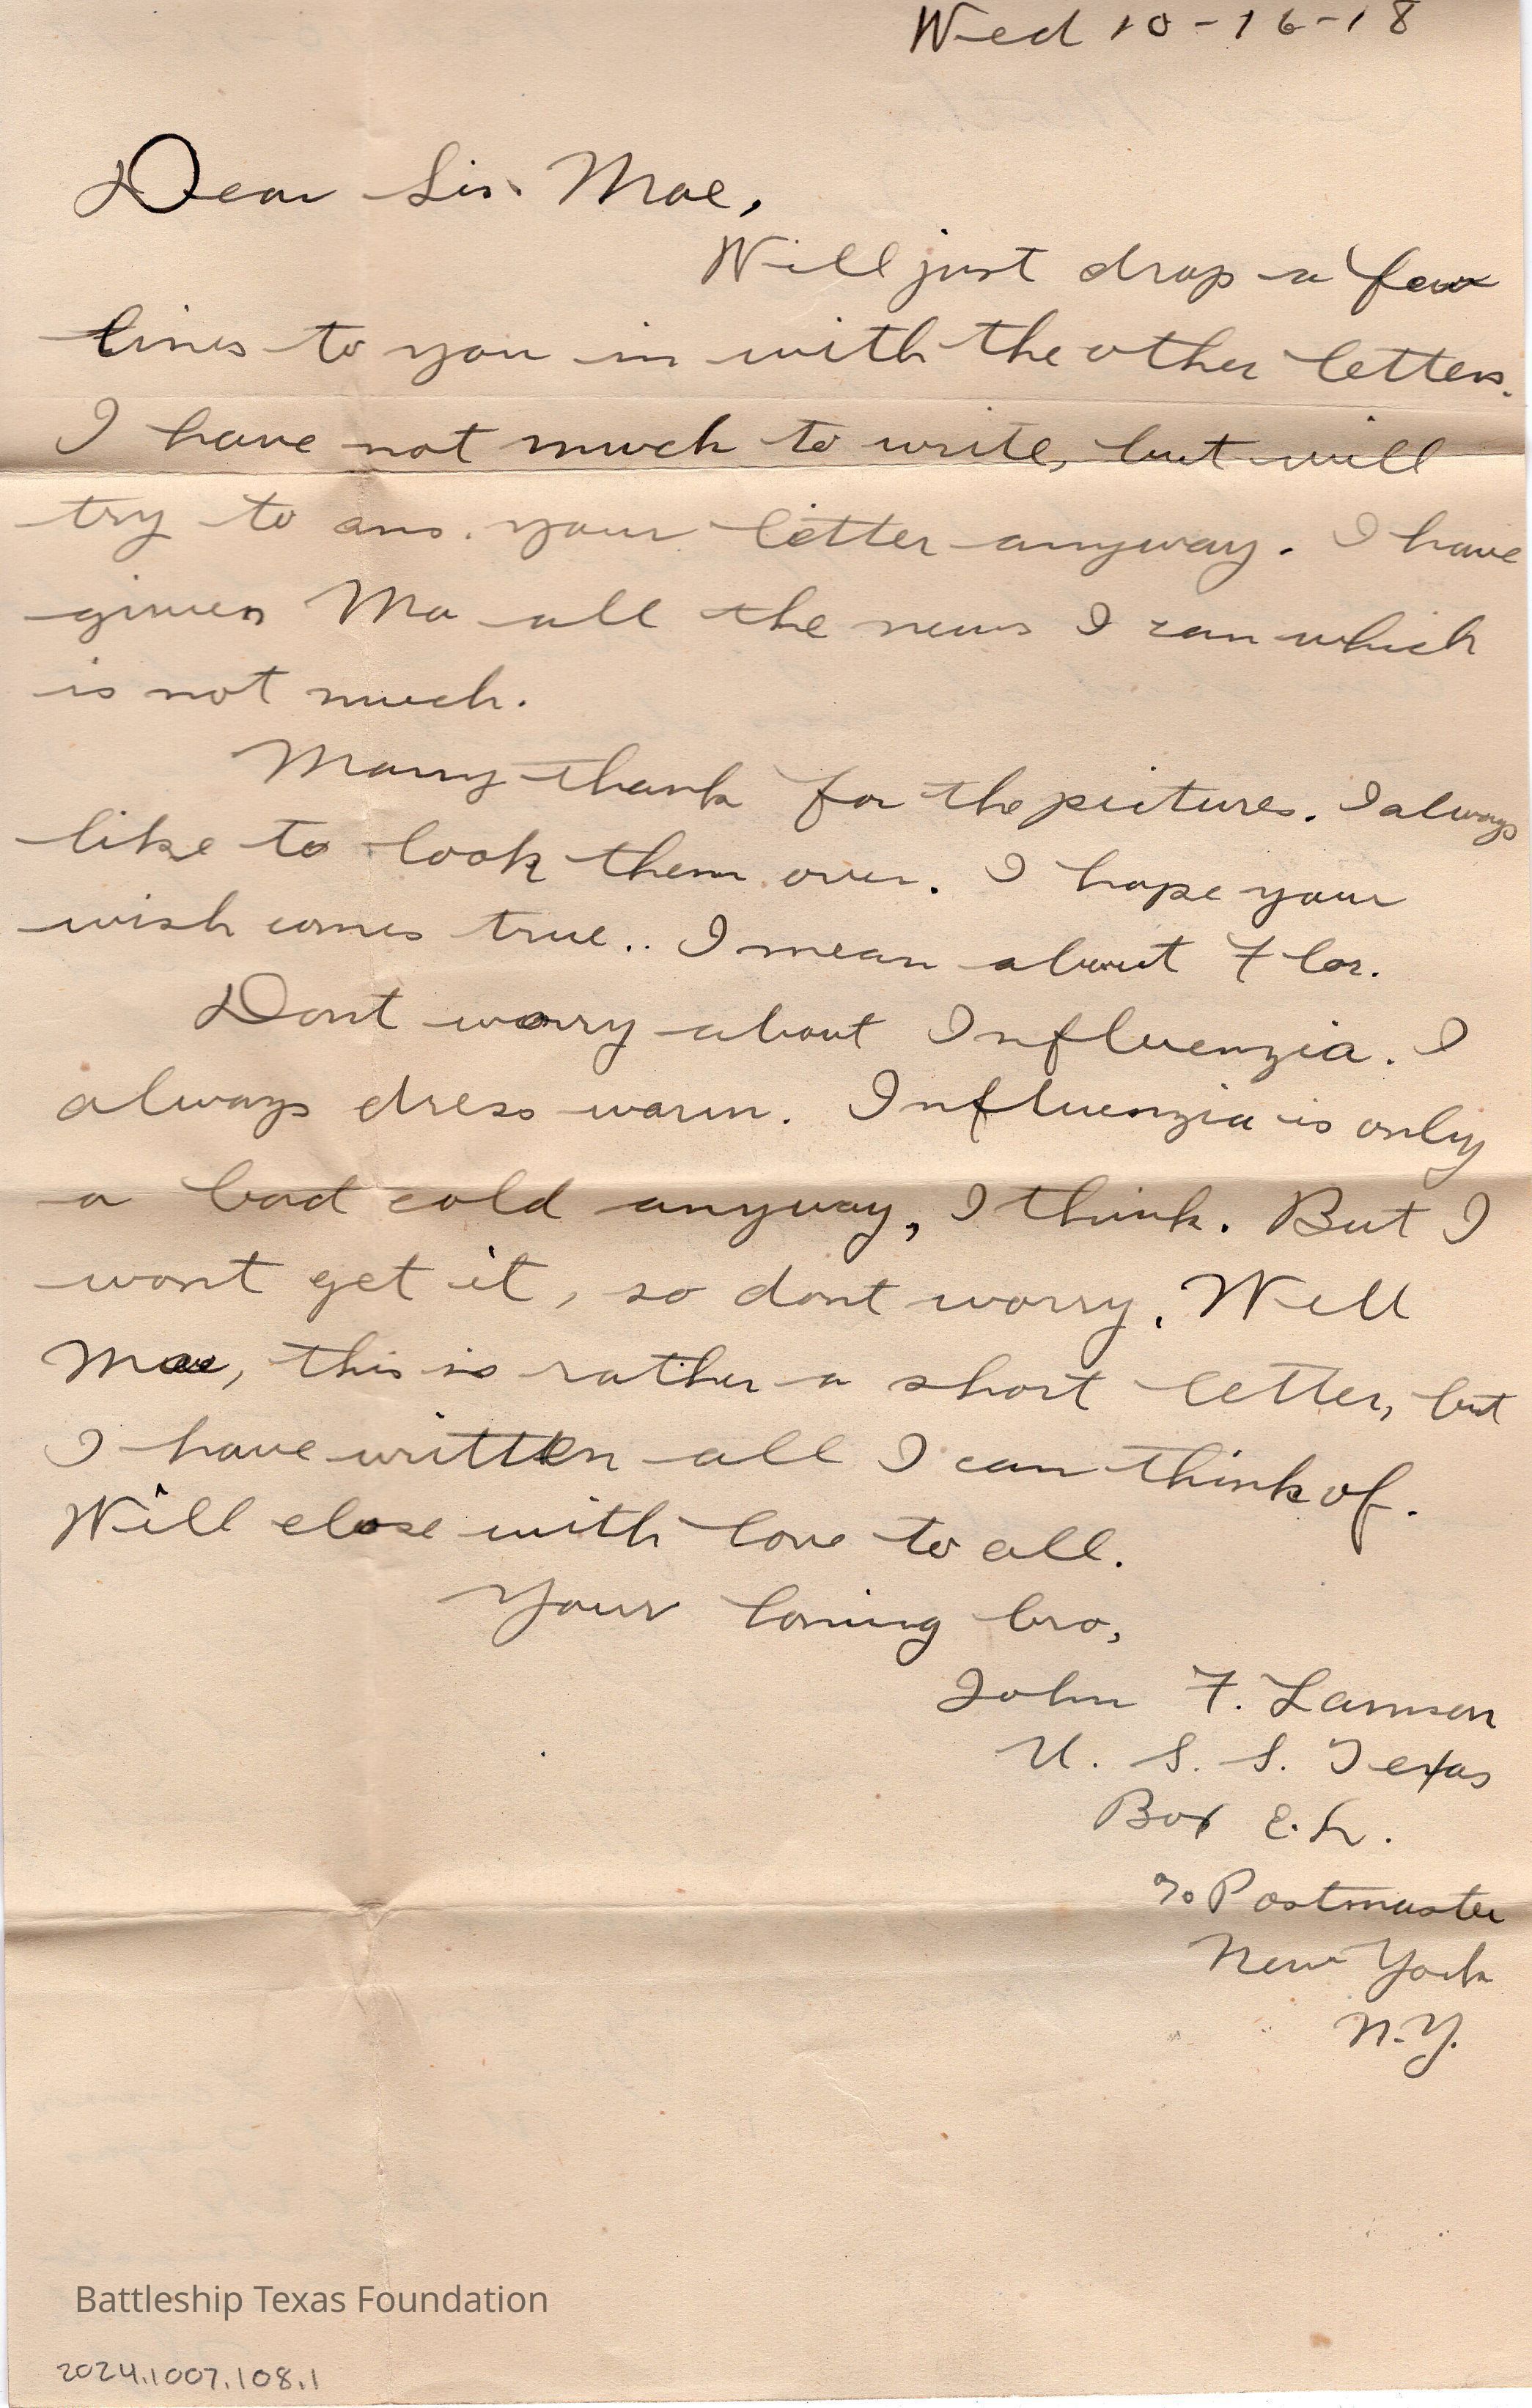 Wed 10-16-18
Dear Sis. Mae,
Will just drop a few
lines to you in with the other letters.
I have not much to write, but will
try to ans. your letter anyway. I have
given Ma all the news I can which
is not much.
Many thank for the pictures. I always
like to look them over. I hope your
wish comes true.. I mean about Flor.
Dont worry about Influenzia. I
always dress warm. Influenzia is only
a bad cold anyway, I think. But I
wont get it, so dont worry. Well
Mae, this is rather a short letter, but
I have written all I can think of.
Will close with love to all.
Your loving bro,
John F. Lamson
U. S. S. Texas
Box E.L.
c/o Postmaster
New York
N.Y.
Battleship Texas Foundation
2024.1007.108.1